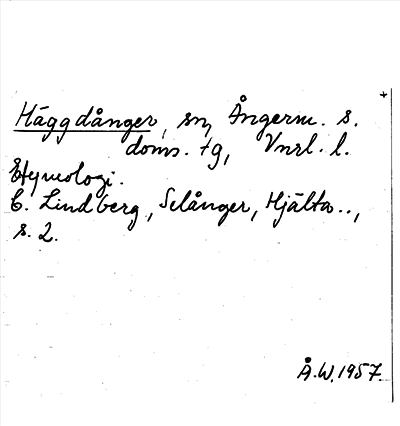 Häggdånger, sn, Ångerm. s.
doms. tg, Vnrl. l.
Etymologi.
C. Lindberg, Selånger, Hjälta..,
s. 2.
Å.W. 1957.